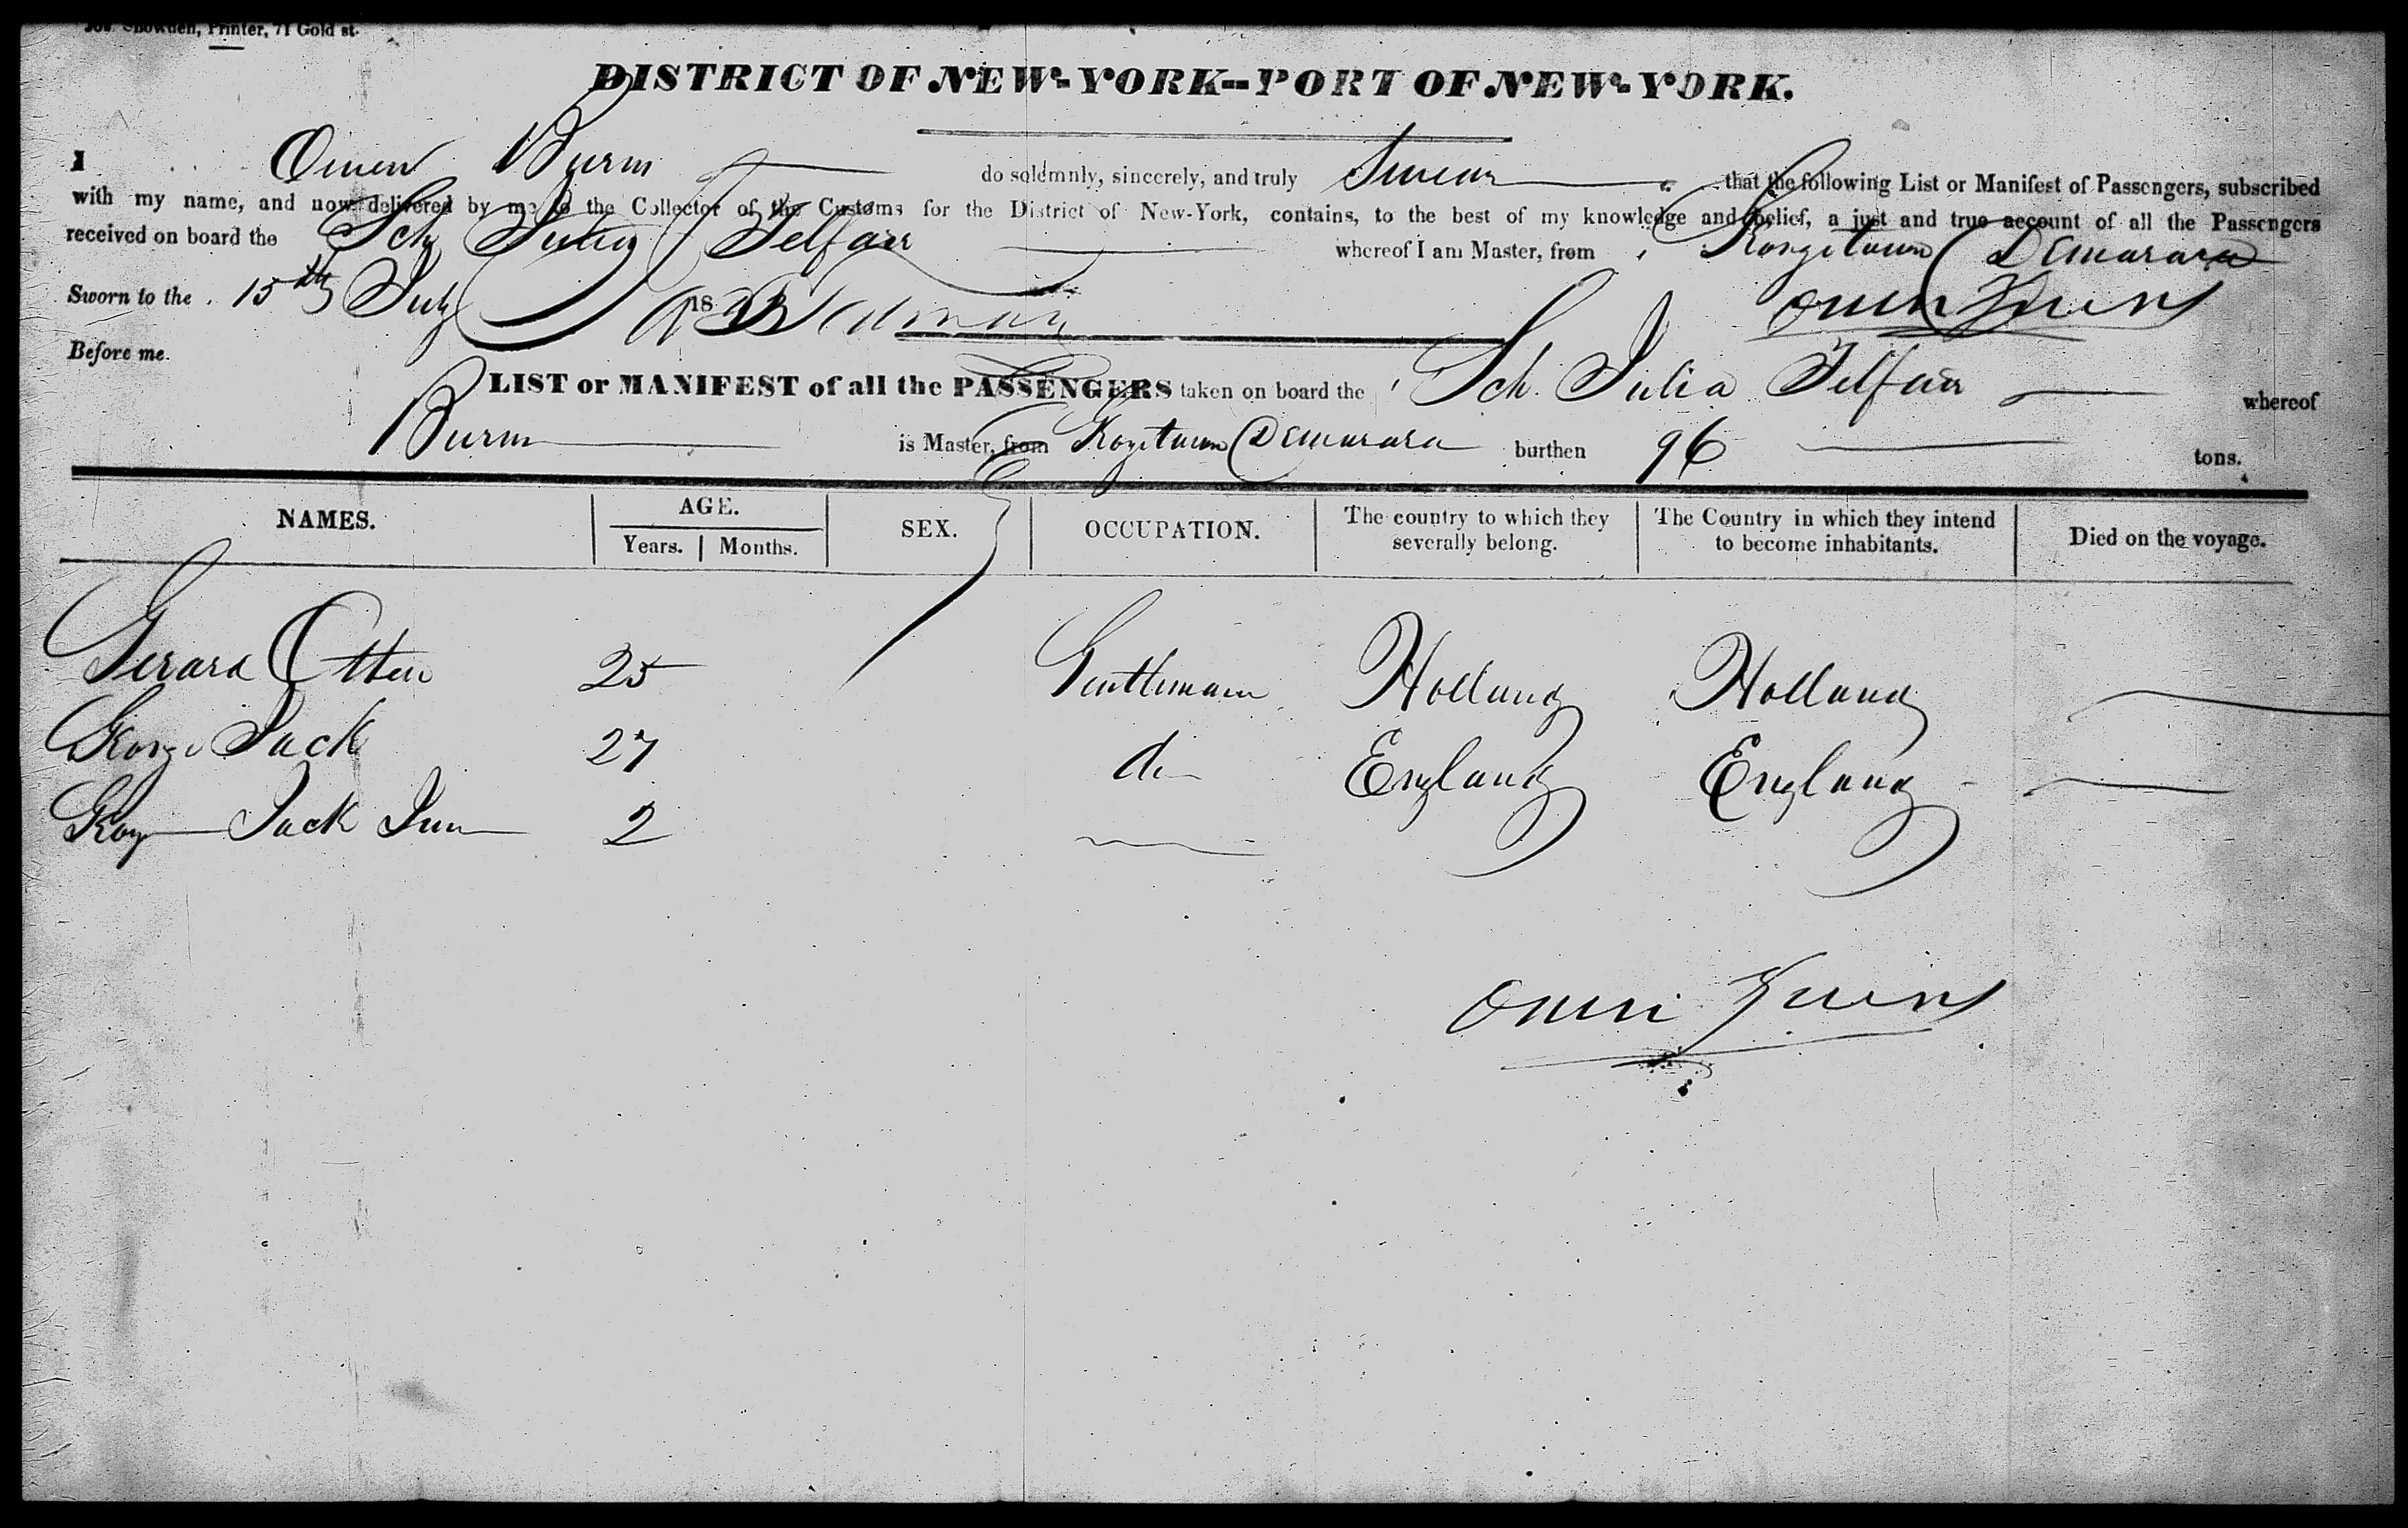 Jos. Snowden, Printer, 71 Gold st.
DISTRICT OF NEW-YORK--PORT OF NEW-YORK.
I Owen Burns do solemnly, sincerely, and truly Swear that the following List or Manifest of Passengers, subscribed
with my name, and now delivered by me to the Collector of the Customs for the District of New-York, contains, to the best of my knowledge and belief, a just and true account of all the Passengers
received on board the Sch Julia Telfair whereof I am Master, from Georgetown Demarara
Sworn to the 15th July 18 Owen Burns
Before me.
LIST or MANIFEST of all the PASSENGERS taken on board the Sch. Julia Telfair whereof
Burns is Master, from Georgetown Demarara burthen 96 tons.
NAMES. AGE. Years. Months. SEX. OCCUPATION. The country to which they severally belong. The Country in which they intend to become inhabitants. Died on the voyage.
Gerard Otten 25 Gentleman Holland Holland
George Jack 27 do England England
Geoy Jack Jun 2
Owen Burns